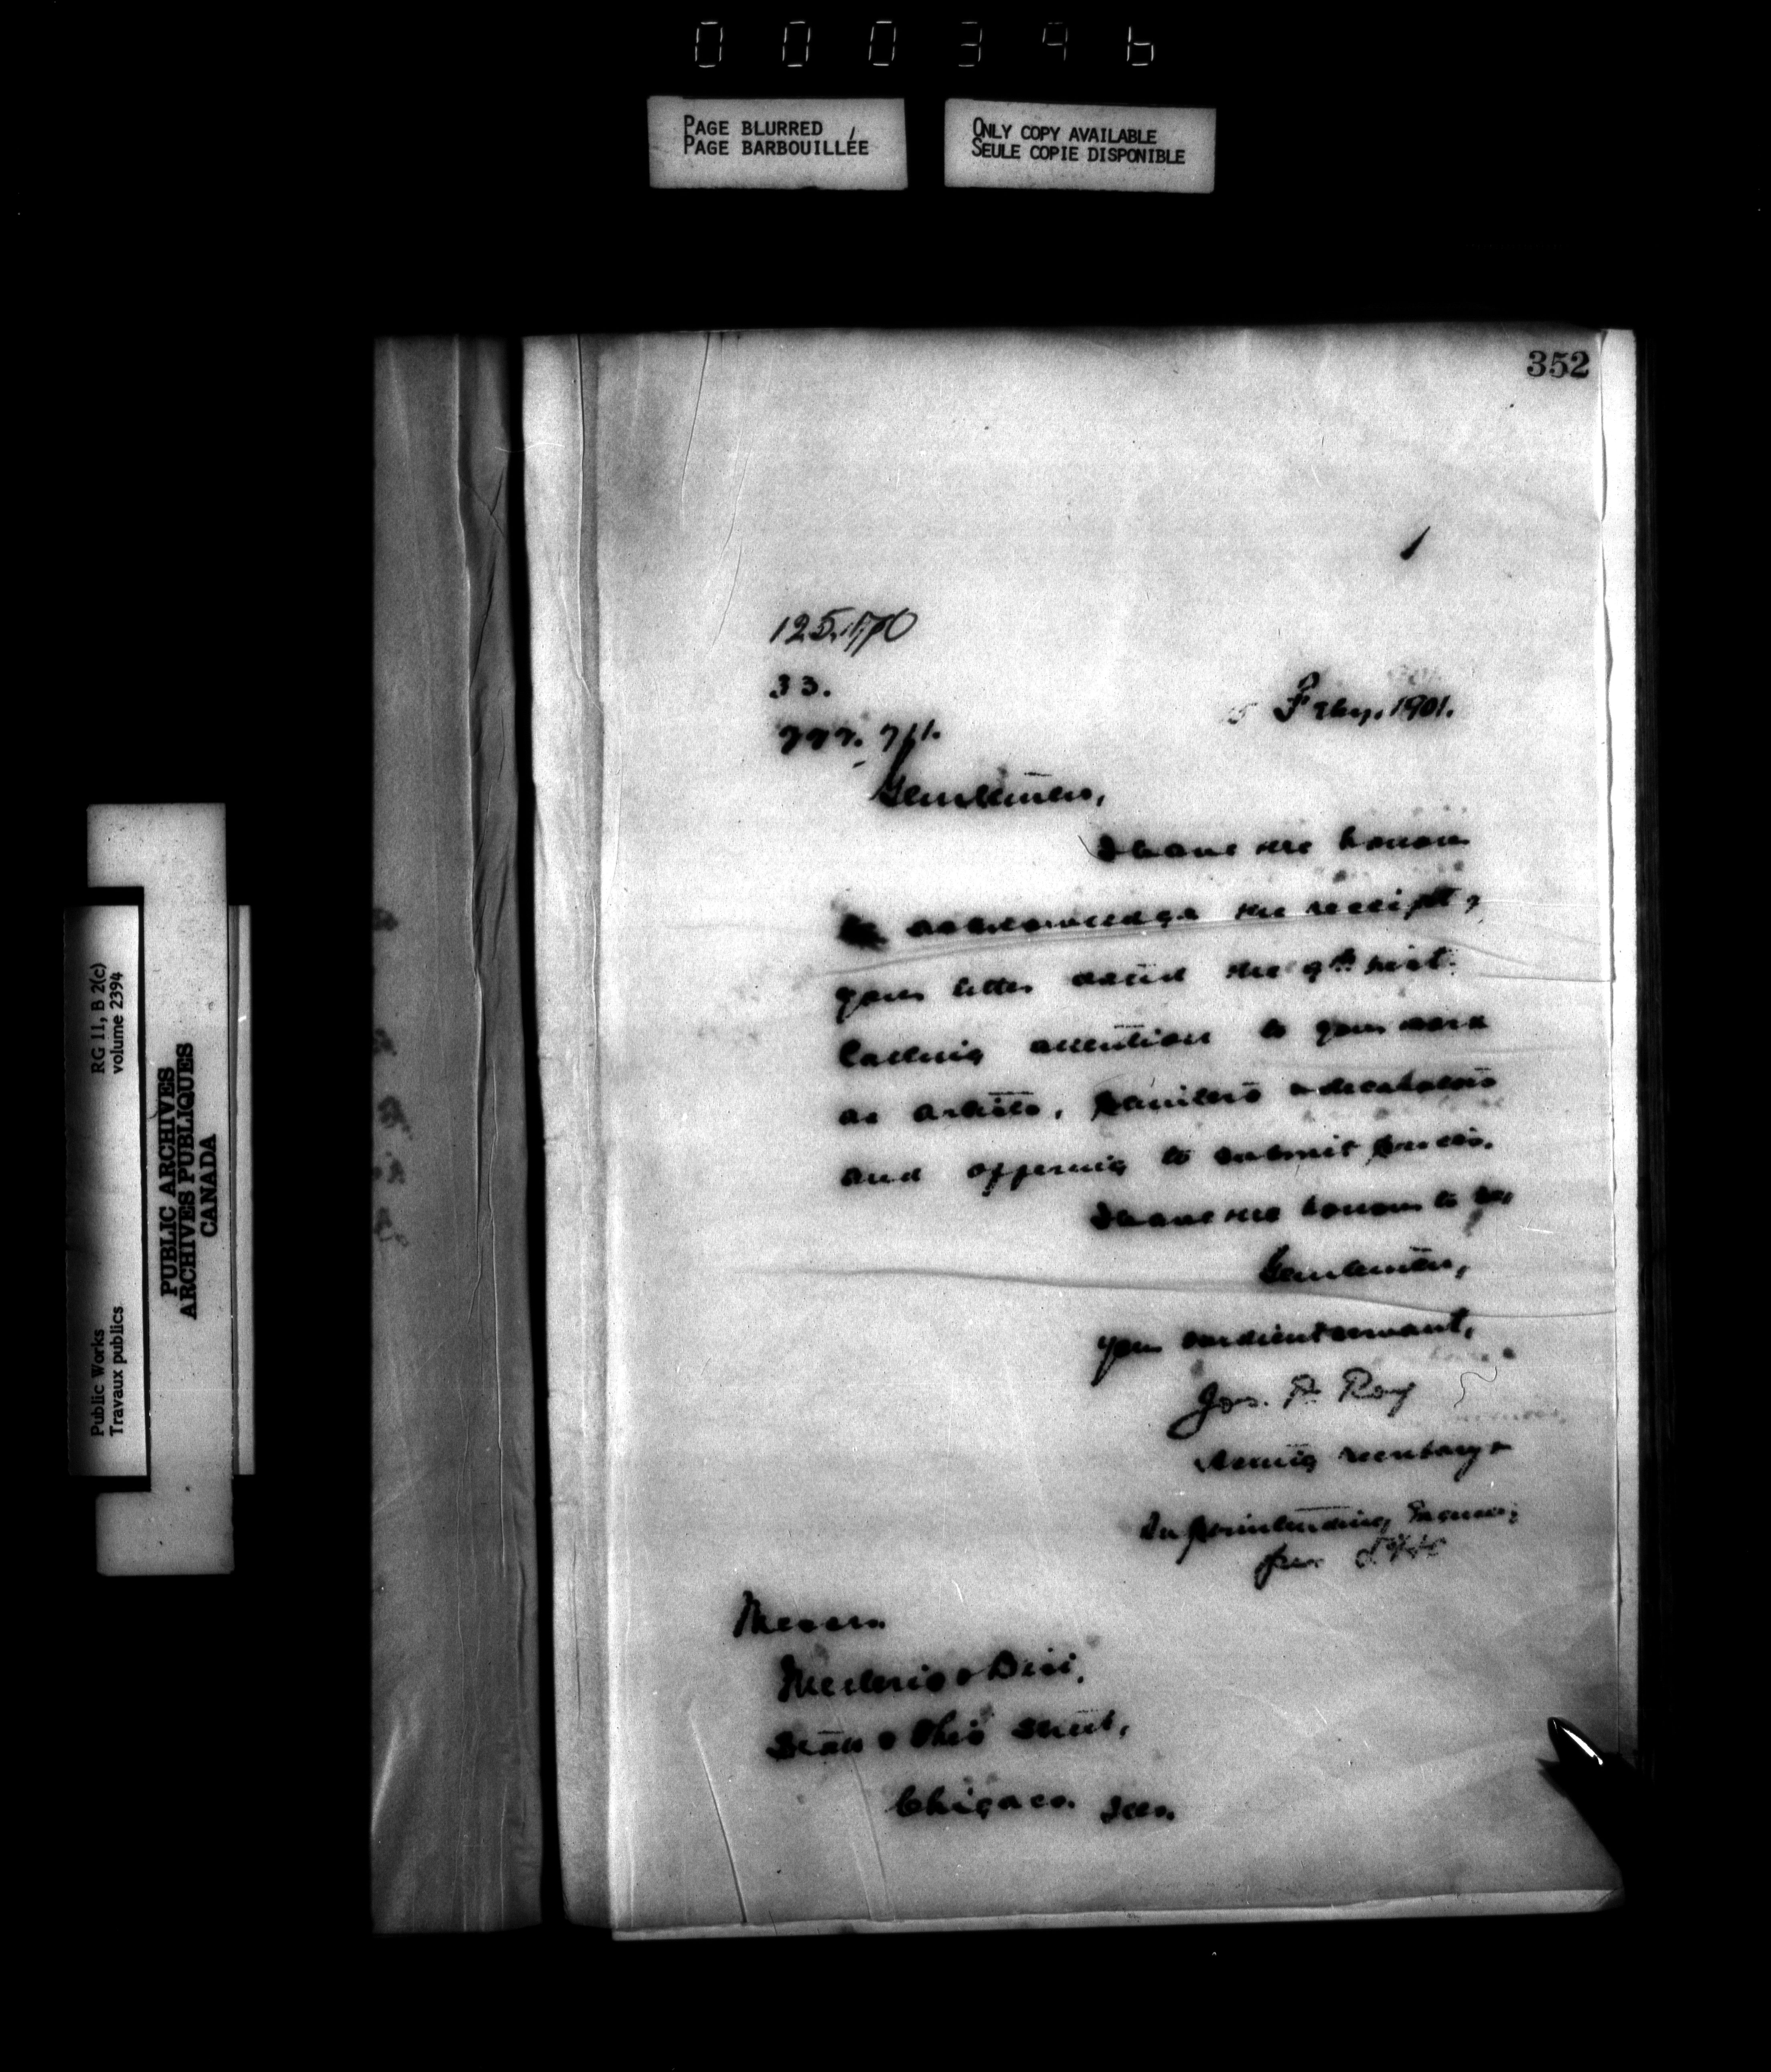 000396
PAGE BLURRED
PAGE BARBOUILLÉE
ONLY COPY AVAILABLE
SEULE COPIE DISPONIBLE
352
33.
Feby. 1901.
Gentlemen,
I have the honour
to acknowledge the receipt of
your letter dated the 9th inst.
Calling attention to your work
as artists, painters & decorators
and offering to submit prices.
I have the honour to be,
Gentlemen,
your obedient servant,
Jos. R. Roy
Acting Secretary &
Superintending Engineer,
per
Messrs.
State & Ohio Street,
Chicago. Ills.
Public Works
Travaux publics
RG 11, B 2(c)
volume 2394
PUBLIC ARCHIVES
ARCHIVES PUBLIQUES
CANADA